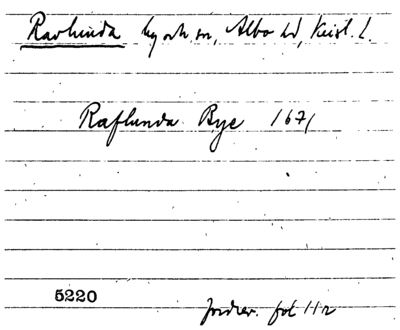 Ravlunda by o sn, Albo hd, Krist. l.
Raflunda Bye 1671
5220
Jordrev. fol 112